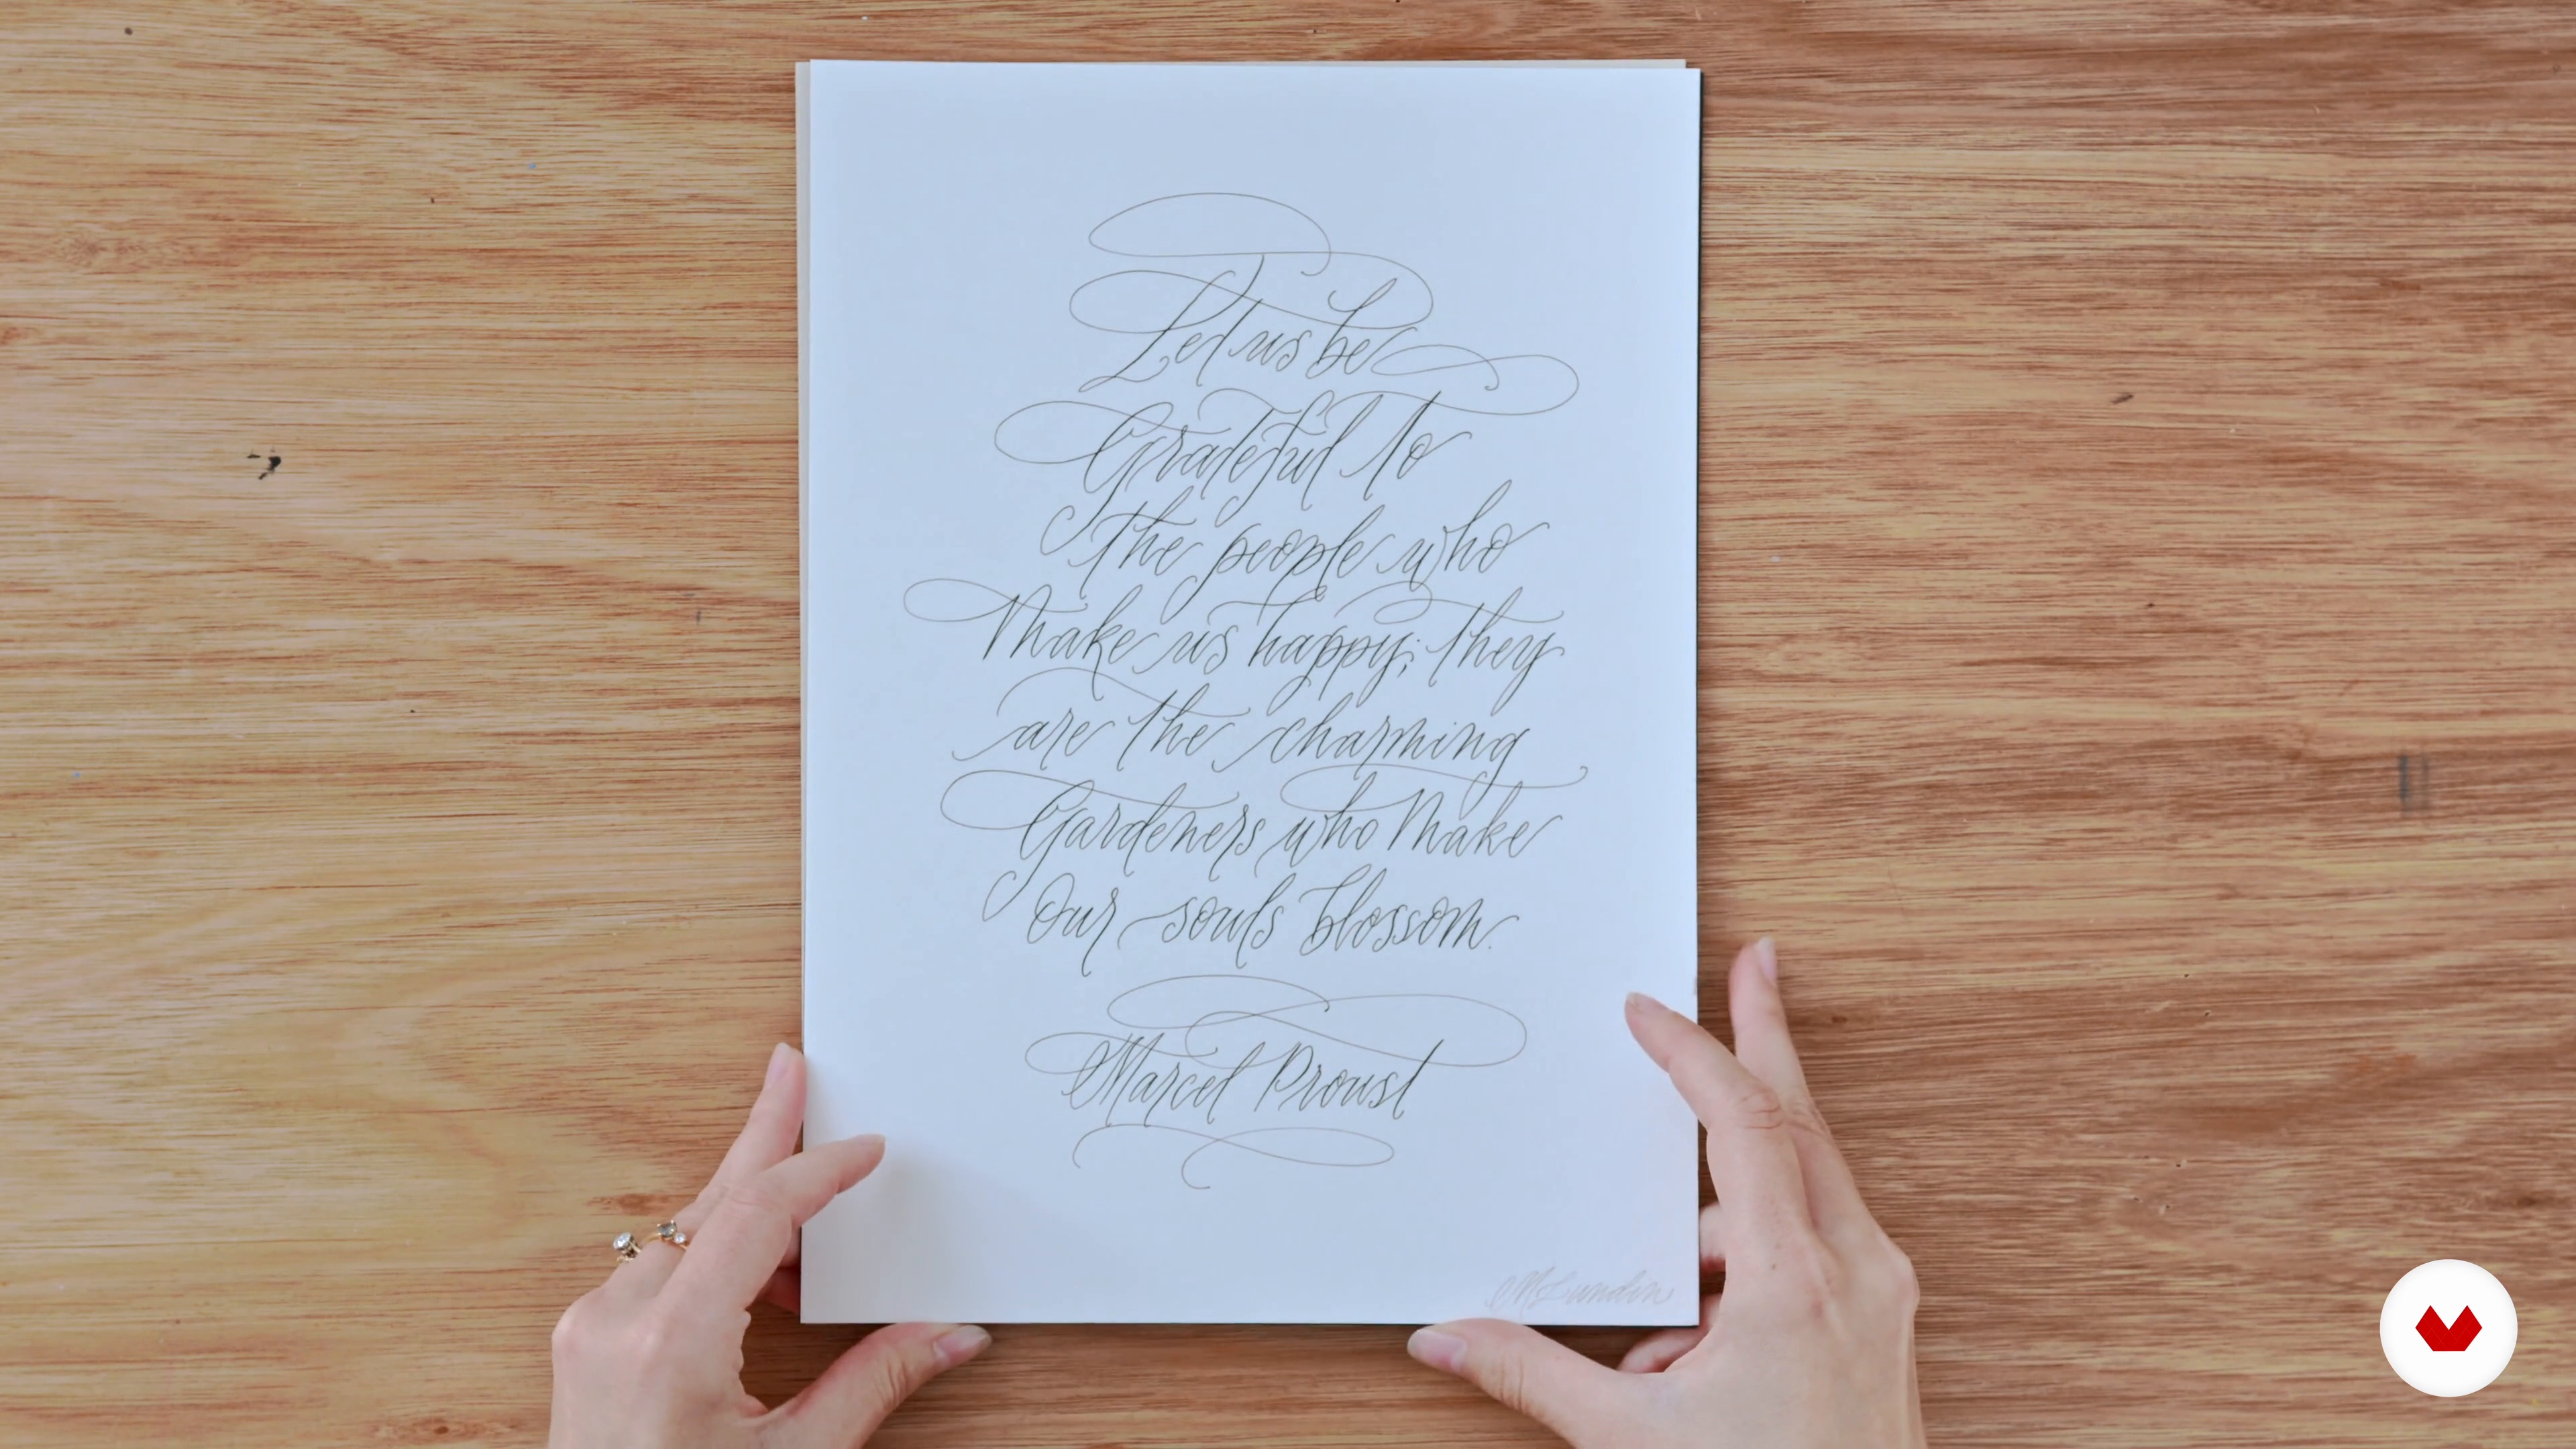 Let us be
Grateful to
the people who
Make us happy; they
are the charming
Gardeners who Make
Our souls blossom.
Marcel Proust
MLundin